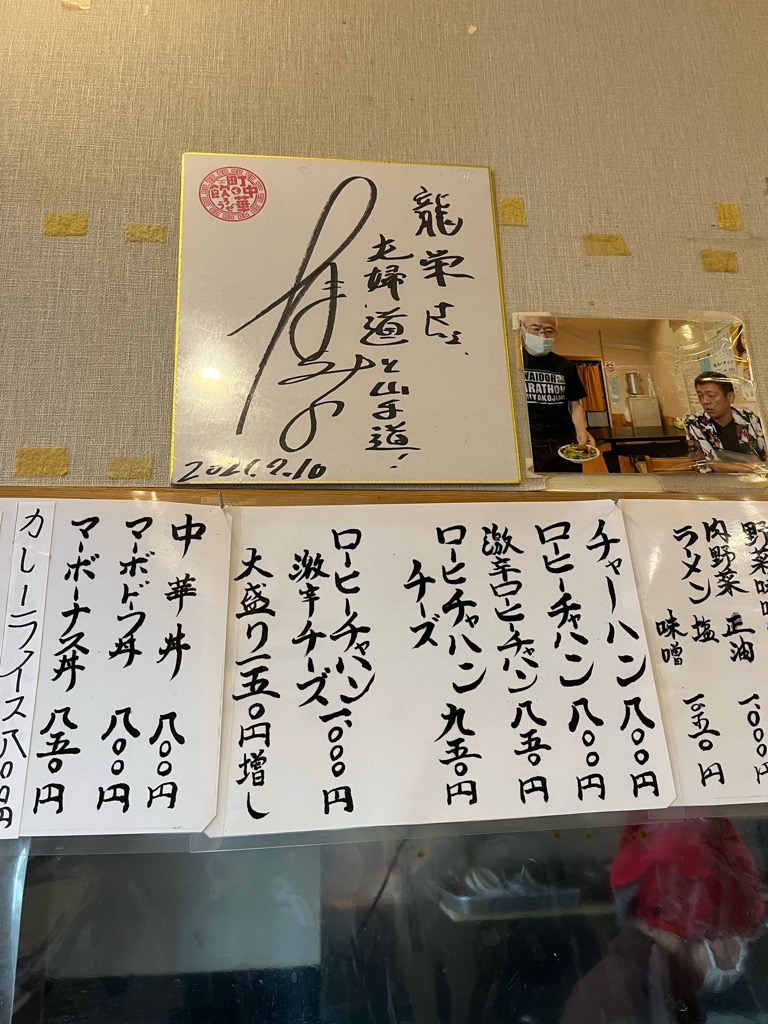 町中華で飲ろうぜ
龍栄さん、
夫婦道と山手道!
2021.2.10
MARATHON
野菜味噌
肉野菜 正油 1.000円
ラーメン 塩
味噌 一.〇五〇円
チャーハン 八〇〇円
ロービーチャハン 八〇〇円
激辛ロービーチャハン 八五〇円
ロービーチャハン
チーズ 九五〇円
ロービーチャハン
激辛チーズ 1.000円
大盛り一五〇円増し
中華丼 八〇〇円
マーボドーフ丼 八〇〇円
マーボーナス丼 八五〇円
カレーライス 八〇〇円